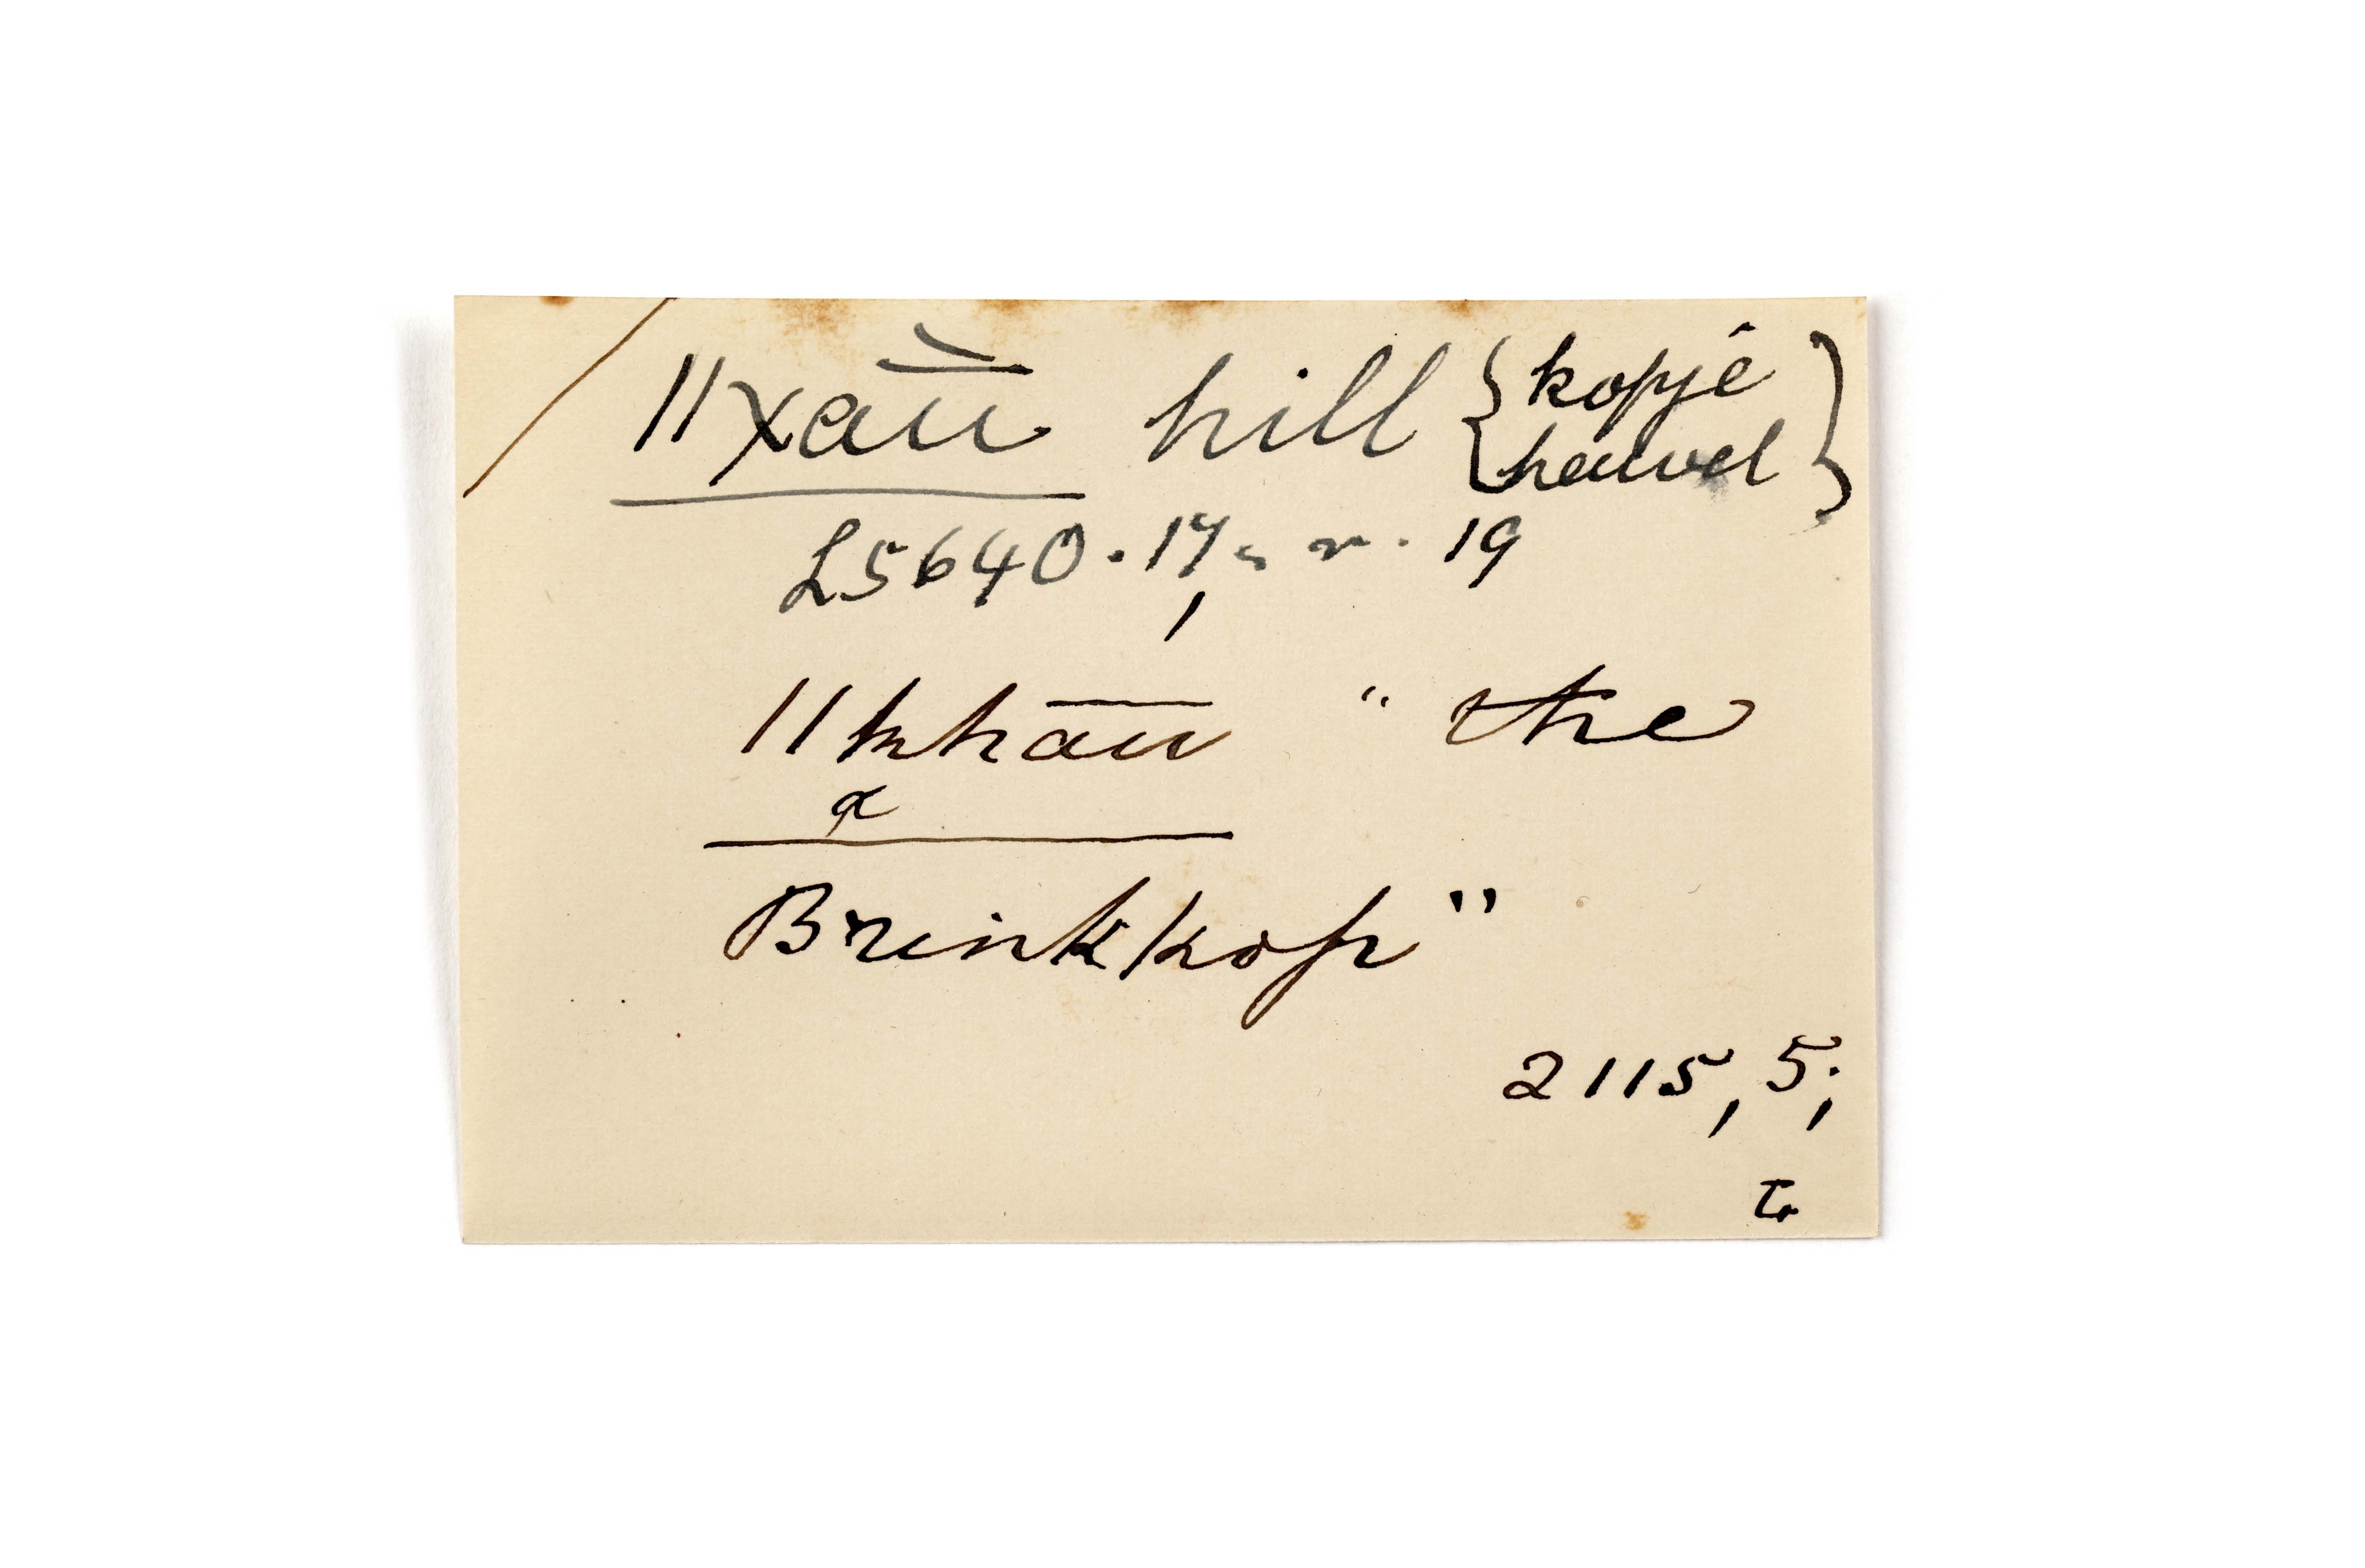 ǁχa͞u hill { kopjé
heuvel }
L5640.17, r. 19
ǁkha͞u " the
α
Brinkkop "
2115, 5;